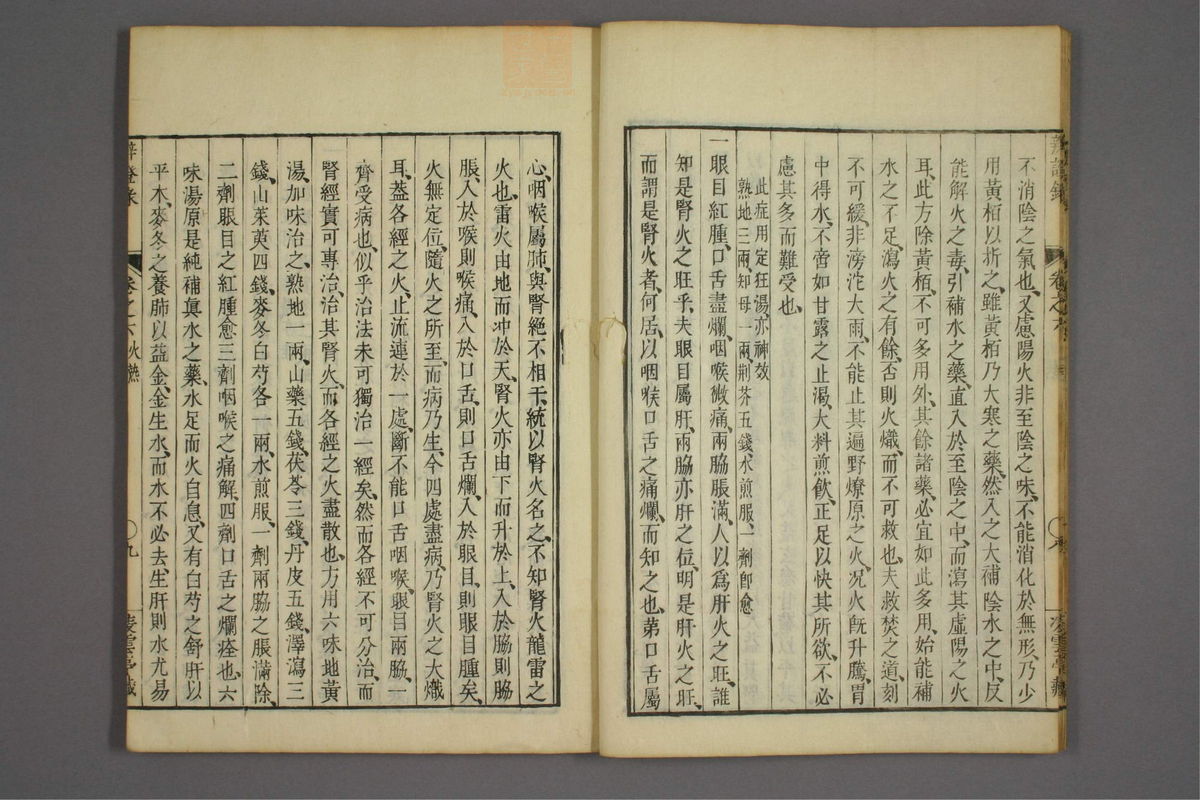 不消陰之氣也又慮陽火非至陰之味不能消化於無形乃少
用黃栢以折之雖黃栢乃大寒之藥然入之大補陰水之中反
能解火之毒引補水之藥直入於至陰之中而瀉其虛陽之火
耳此方除黃栢不可多用外其餘諸藥必宜如此多用始能補
水之不足瀉火之有餘否則火熾而不可救也夫救焚之道刻
不可緩非滂沱大雨不能止其遍野燎原之火况火旣升騰胃
中得水不啻如甘露之止渴大料煎飲正足以快其所欲不必
慮其多而難受也
此症用定狂湯亦神效
熟地三兩知母一兩荆芥五錢水煎服一劑卽愈
一眼目紅腫口舌盡爛咽喉微痛兩脇脹滿人以爲肝火之旺誰
知是腎火之旺乎夫眼目屬肝兩脇亦肝之位明是肝火之旺
而謂是腎火者何居以咽喉口舌之痛爛而知之也第口舌屬
辨證錄
卷之六火熱
九
心咽喉屬肺與腎絕不相干統以腎火名之不知腎火龍雷之
火也雷火由地而冲於天腎火亦由下而升於上入於脇則脇
脹入於喉則喉痛入於口舌則口舌爛入於眼目則眼目腫矣
火無定位隨火之所至而病乃生今四處盡病乃腎火之大熾
耳葢各經之火止流連於一處斷不能口舌咽喉眼目兩脇一
齊受病也似乎治法未可獨治一經矣然而各經不可分治而
腎經實可專治治其腎火而各經之火盡散也方用六味地黃
湯加味治之熟地一兩山藥五錢茯苓三錢丹皮五錢澤瀉三
錢山茱萸四錢麥冬白芍各一兩水煎服一劑兩脇之脹滿除
二劑眼目之紅腫愈三劑咽喉之痛解四劑口舌之爛痊也六
味湯原是純補眞水之藥水足而火自息又有白芍之舒肝以
平木麥冬之養肺以益金金生水而水不必去生肝則水尤易